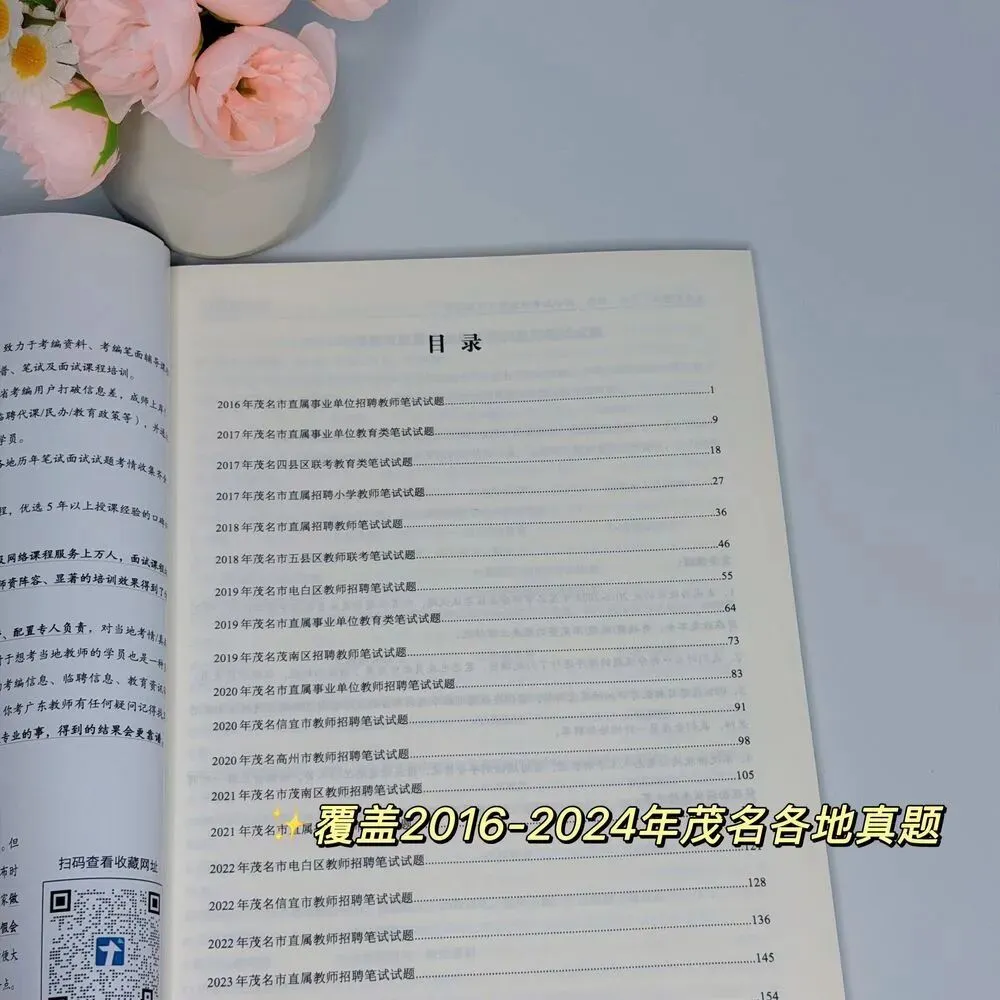 致力于考编资料、考编笔面辅导
普、笔试及面试课程培训。
省考编用户打破信息差，成师上岸
临聘代课/民办/教育政策等），并
学员。
各地历年笔试面试试题考情收集齐
程，优选5年以上授课经验的口
及网络课程服务上万人，面试课程
师资阵容、显著的培训效果得到了
、配置专人负责，对当地考情/真
对于想考当地教师的学员也是一种
考编信息、临聘信息、教育资
你考广东教师有任何疑问记得
专业的事，得到的结果会更靠谱
。但
布时
家做
但会
使大
一点。
扫码查看收藏网址
目 录
2016年茂名市直属事业单位招聘教师笔试试题 1
2017年茂名市直属事业单位教育类笔试试题 9
2017年茂名四县区联考教育类笔试试题 18
2017年茂名市直属招聘小学教师笔试试题 27
2018年茂名市直属招聘教师笔试试题 36
2018年茂名市五县区教师联考笔试试题 46
2019年茂名市电白区教师招聘笔试试题 55
2019年茂名市直属事业单位教育类笔试试题 64
2019年茂名茂南区招聘教师笔试试题 73
2020年茂名市直属事业单位教师招聘笔试试题 83
2020年茂名信宜市教师招聘笔试试题 91
2020年茂名高州市教师招聘笔试试题 98
2021年茂名市茂南区教师招聘笔试试题 105
2021年茂名市直属
✨覆盖2016-2024年茂名各地真题
2022年茂名市电白区教师招聘笔试试题 121
2022年茂名信宜市教师招聘笔试试题 128
2022年茂名市直属教师招聘笔试试题 136
2023年茂名市直属教师招聘笔试试题 145
154